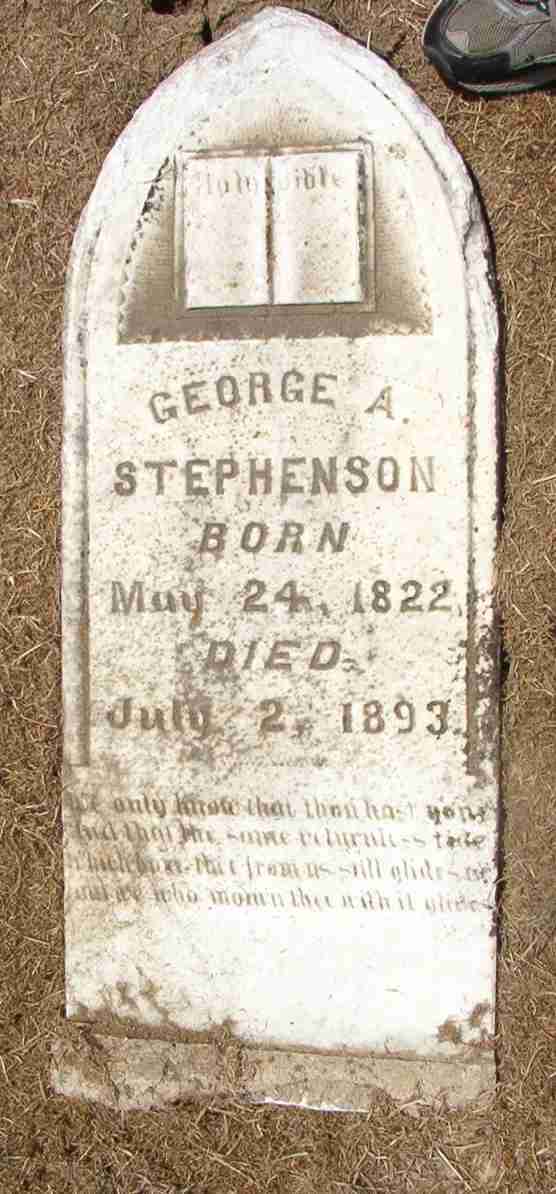 Holy Bible
GEORGE A.
STEPHENSON
BORN
May 24, 1822.
DIED
July 2, 1893.
We only know that thou hast gone
And that the same returnless tide
Which bore thee from us still glides on
And we who mourn thee with it glide